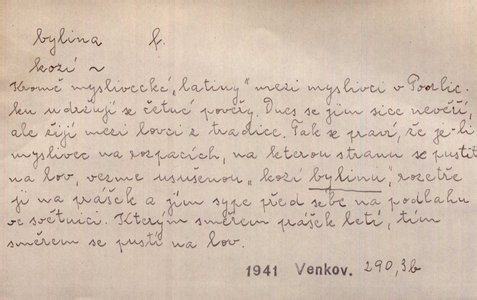 bylina f.
kozí ~
Kromě myslivecké „latiny" mezi myslivci v Podlic-
ku udržují se četné pověry. Dnes se jim sice nevěří,
ale žijí mezi lovci z tradice. Tak se praví, že je-li
myslivec na rozpacích, na kterou stranu se pustit
na lov, vezme usušenou „kozí bylinu", rozetře
ji na prášek a jím sype před sebe na podlahu
ve světnici. Kterým směrem prášek letí, tím
směrem se pustí na lov.
1941 Venkov. 290,3b